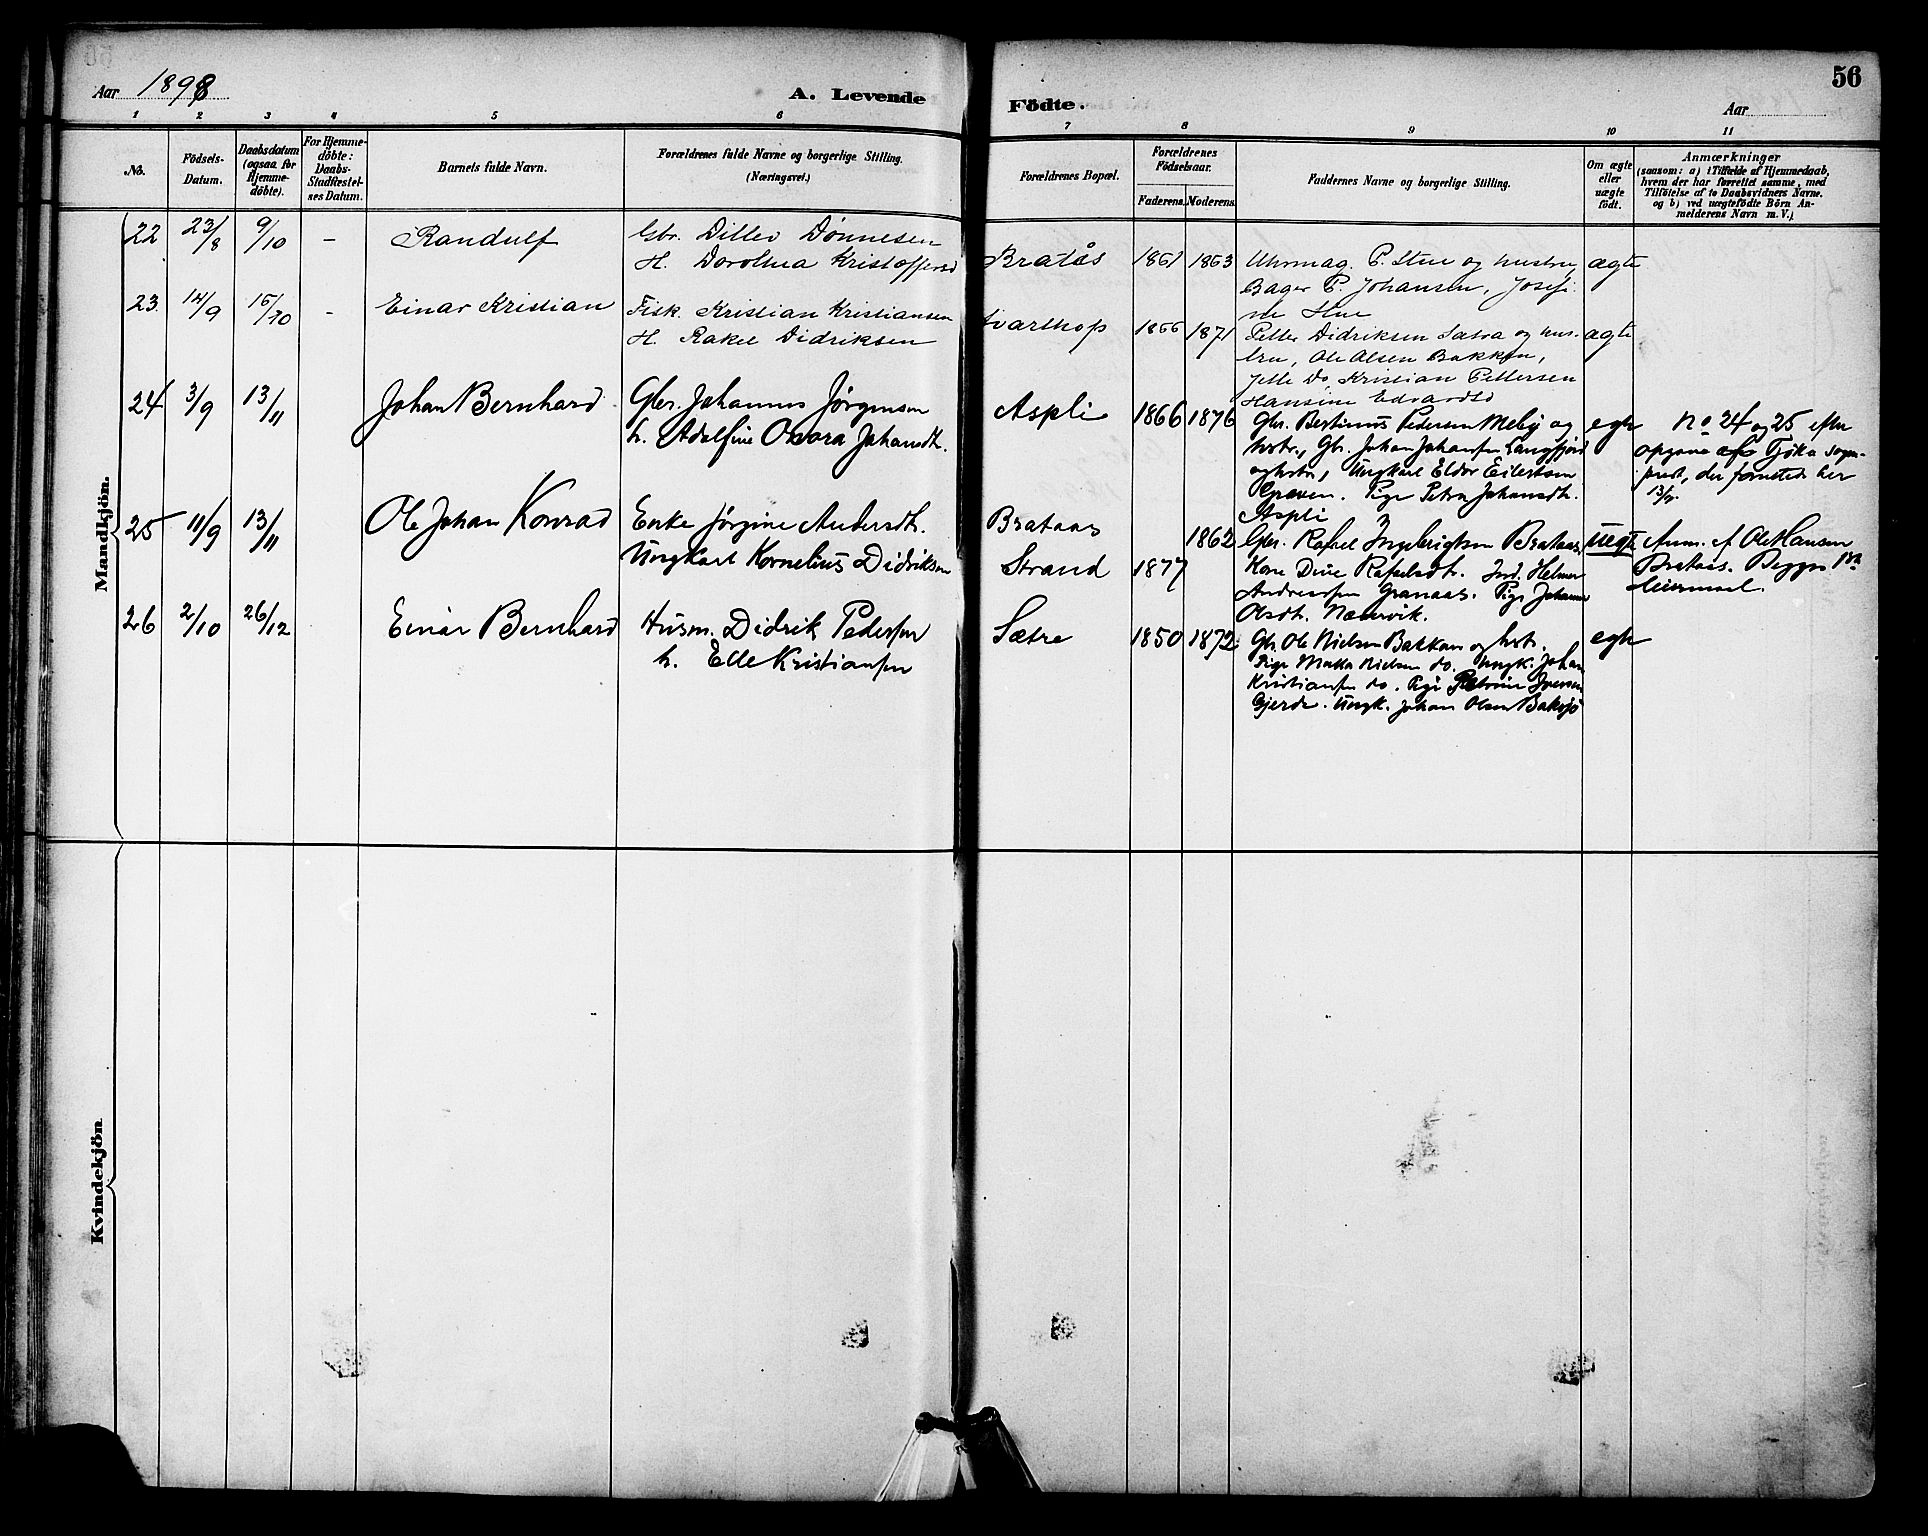 56
Aar 1898
A. Levende Födte.
Aar
1 2 3 4 5 6 7 8 9 10 11
No.
Födsels-Datum.
Daabsdatum (ogsaa for Hjemme-döbte).
For Hjemme-döbte: Daabs-Stadfæstel-ses Datum.
Barnets fulde Navn.
Forældrenes fulde Navne og borgerlige Stilling. (Næringsvei.)
Forældrenes Bopæl.
Forældrenes Födselsaar.
Faderens. Moderens.
Faddernes Navne og borgerlige Stilling.
Om ægte eller uægte födt.
Anmærkninger
(saasom: a) i Tilfælde af Hjemmedaab, hvem der har forrettet samme, med Tilföielse af to Daabsvidners Navne, og b) ved uægtefödte Börn An-melderens Navn m. V.)
Mandkjön.
22 23/8 9/10 - Randulf
Gbr. Ditlev Dönnesen
H. Dorothea Kristoffersd
Bratås 1861 1863
Uhrmag. P. Stue og hustru,
Bager P. Johansen, Josefi
ne Stue
ægte
23 14/9 16/10 - Einar Kristian
Fisk. Kristian Kristiansen
H. Rakel Didriksen
1866 1871
Petter Didriksen Sætra og hus-
tru, Ole Olsen Bakken,
Do, Kristian Pettersen
Hansine Edvardsd
ægte
24 3/9 13/11 Johan Bernhard
Gbr. Johannes Jörgensen
h. Adolfine Johansdtr.
Aspli 1866 1876
Gbr. Pedersen Meby og
hstr., Gbr. Johan Johansen Langfjord
og hstr, Ungkarl Eldor Eilertsen
Pige Petra Johansdtr.
Aspli
egte
No 24 og 25 efter
opgave af Fjöka sogne-
prest, der forrettede her
13/11.
25 11/9 13/11 Ole Johan Konrad
Enke Jörgine Andersdtr.
Ungkarl Kornelius Didriksen
Brataas 1862
Strand 1877
Gbr. Rafael Ingebrigtsen Brataas,
Kone Rafaelsdtr. Ind. Helmer
Andreassen Granaas. Pige Johanna
Olsdtr. Næmrvik.
uegte
Anm. af Ole Hansen
Brataas. Begges 1ste
leiermaal.
26 2/10 26/12 Einar Bernhard
Husm. Didrik Pedersen
h. Elle Kristiansen
Sætre 1850 1872
Gbr. Ole Nielsen Bakken og hstr.
Pige Nielsen do. Ungk. Johan
Kristiansen do. Pige Petrine Iversen
Gjerde. Ungk. Johan Olsen Baksjö
egte
Kvindekjön.